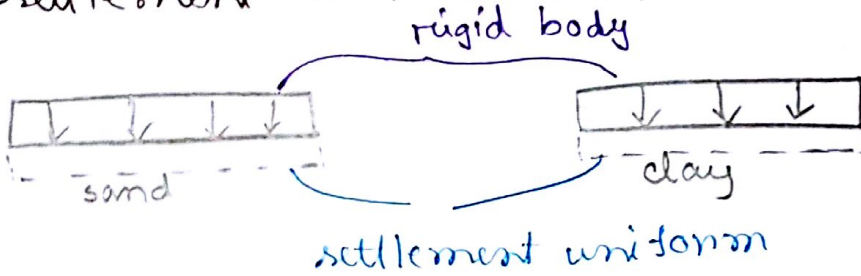 rigid body
sand
clay
settlement uniform